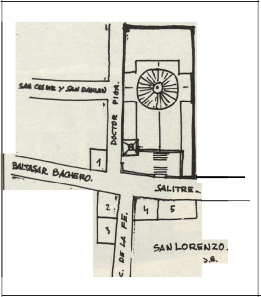 SAN COSME Y SAN DAMIAN
DOCTOR PIGA.
1
BALTASAR BACHERO.
SALITRE.
2
4
5
3
C. DE LA FE.
SAN LORENZO.